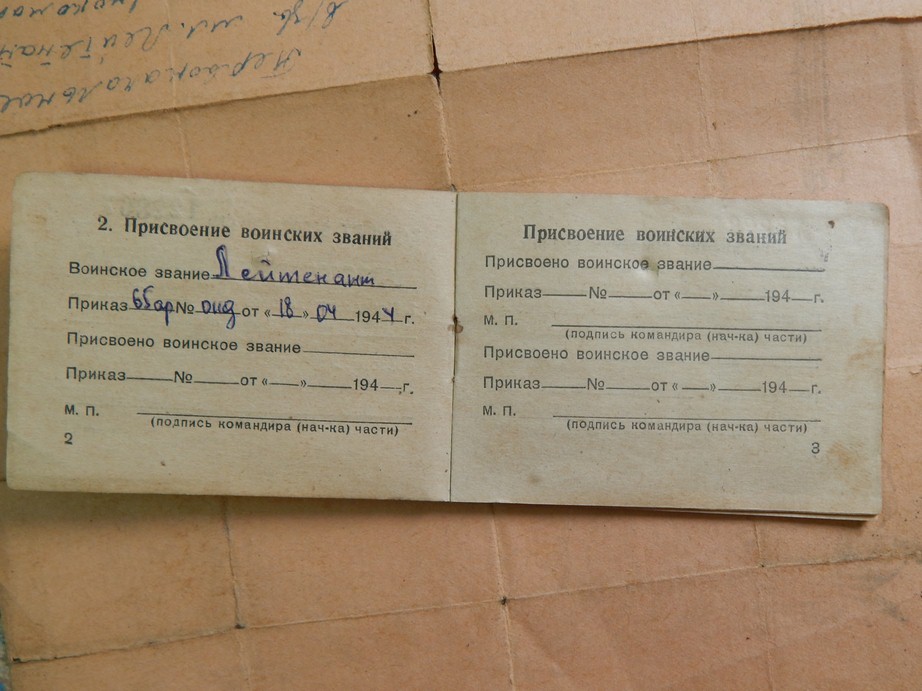 Первоначальное
в/зв. мл. Лейтенан
2. Присвоение воинских званий
Воинское звание Лейтенант
Приказ № от « 18 » 04 1944 г.
Присвоено воинское звание
Приказ № от « » 194 г.
М. П.
(подпись командира (нач-ка) части)
2
Присвоение воинских званий
Присвоено воинское звание
Приказ № от « » 194 г.
М. П.
(подпись командира (нач-ка) части)
Присвоено воинское звание
Приказ № от « » 194 г.
М. П.
(подпись командира (нач-ка) части)
3